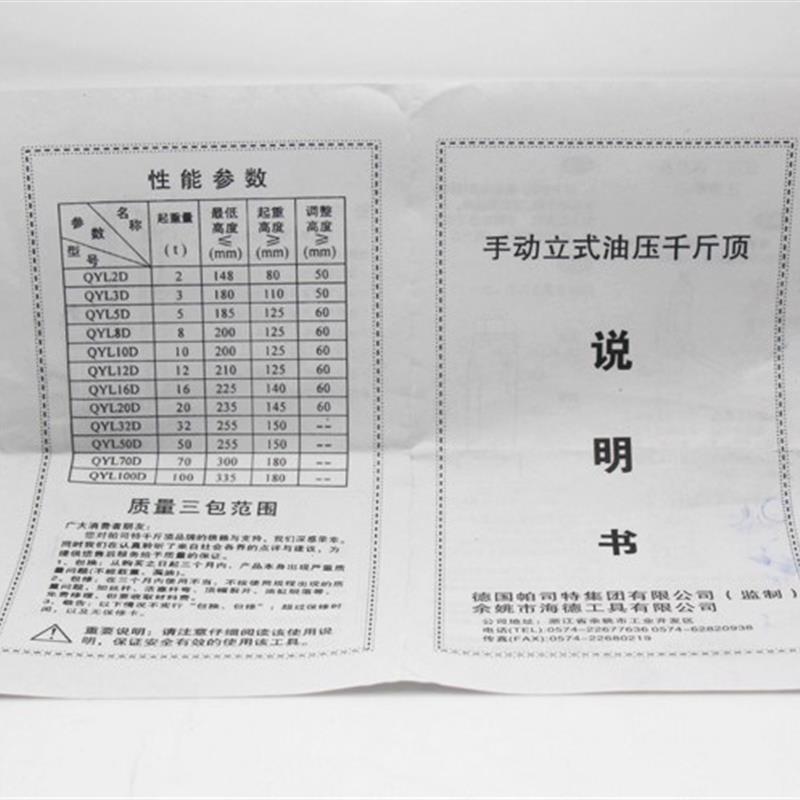 性能参数
参数 名称 型号 起重量(t) 最低高度≤(mm) 起重高度≥(mm) 调整高度≥(mm)
QYL2D 2 148 80 50
QYL3D 3 180 110 50
QYL5D 5 185 125 60
QYL8D 8 200 125 60
QYL10D 10 200 125 60
QYL12D 12 210 125 60
QYL16D 16 225 140 60
QYL20D 20 235 145 60
QYL32D 32 255 150 --
QYL50D 50 255 150 --
QYL70D 70 300 180 --
QYL100D 100 335 180 --
质量三包范围
广大消费者朋友:
您对帕司特千斤顶品牌的信赖与支持,我们深感荣幸。
同时我们在认真聆听了来自社会各界的点评与建议,为
提供给售后服务给予质量的保证。
1、包换:从购买之日起三个月内,产品本身出现严重质
量问题(不能载重、漏油)。
2、包修:在三个月内使用不当,不按使用规程出现的质
量问题,如丝杆、活塞杆弯、顶帽裂片、油缸脱落等,
免费修理,但要收取材料费。
3、敬告:以下情况不实行“包换、包修”:超过保修时
间,以及无保修卡。
重要说明:请注意仔细阅读该使用说
明,保证安全有效的使用该工具。
手动立式油压千斤顶
说
明
书
德国帕司特集团有限公司(监制)
余姚市海德工具有限公司
公司地址:浙江省余姚市工业开发区
电话(TEL):0574-22677636 0574-62820938
传真(FAX):0574-22680219